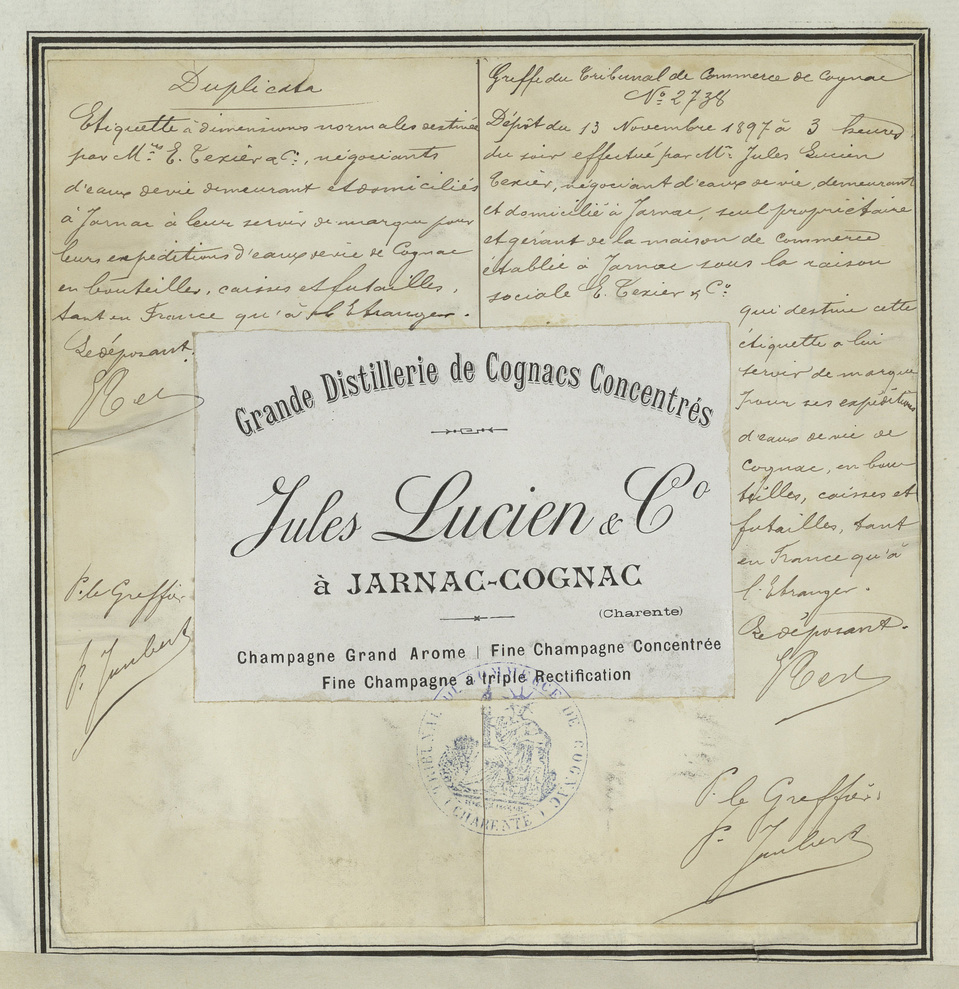 Duplicata
Etiquette à dimensions normales destinée
par Mrs E. Texier & Cie, négociants
d'eaux de vie demeurant et domiciliés
à Jarnac à leur servir de marque pour
leurs expéditions d'eaux de vie de Cognac
en bouteilles, caisses et futailles,
tant en France qu'à l'Etranger.
Le déposant.
P. le Greffier
P. Jambert
Greffe du Tribunal de Commerce de Cognac
No 2738
Dépôt du 13 Novembre 1897 à 3 heures
du soir effectué par Mr Jules Lucien
Texier, négociant d'eaux de vie, demeurant
et domicilié à Jarnac, seul propriétaire
et gérant de la maison de commerce
établie à Jarnac sous la raison
sociale E. Texier & Co
qui destine cette
étiquette a lui
servir de marque
pour ses expéditions
d'eaux de vie de
Cognac, en bou
teilles, caisses et
futailles, tant
en France qu'à
l'Etranger.
Le déposant.
P. le Greffier
P. Jambert
Grande Distillerie de Cognacs Concentrés
Jules Lucien & Co
à JARNAC-COGNAC
(Charente)
Champagne Grand Arome | Fine Champagne Concentrée
Fine Champagne à triple Rectification
TRIBUNAL DE COMMERCE DE COGNAC
(CHARENTE)